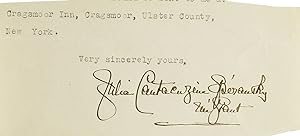 Cragsmoor Inn, Cragsmoor, Ulster County,
New York.
Very sincerely yours,
Julia Cantacuzène Spéransky
née Grant